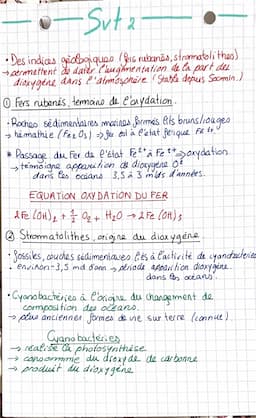 Svt 2
• Des indices géologiques (fers rubanés, stromatolithes)
→ permettent de dater l'augmentation de la part du
dioxygène dans l'atmosphère (stable depuis 500mln.)
① Fers rubanés, témoins de l'oxydation.
• Roches sédimentaires marines formées lits bruns/rouges
→ hématite (Fe2O3) → fer est à l'état ferrique Fe3+
* Passage du Fer de l'état Fe2+ à Fe3+ → oxydation
→ témoigne apparition de dioxygène
dans les océans 3,5 à 3 mds d'années.
EQUATION OXYDATION DU FER
2 Fe(OH)2 + 1/2 O2 + H2O → 2 Fe(OH)3
② Strommatolithes, origine du dioxygène
• fossiles, couches sédimentaires liés à l'activité de cyanobactéries
• environ -3,5 md d'ann → période apparition dioxygène
dans les océans.
• Cyanobactéries à l'origine du changement de
composition des océans.
→ plus anciennes formes de vie sur terre (connue)
Cyanobactéries
→ réalise la photosynthèse
→ consomme du dioxyde de carbone
→ produit du dioxygène